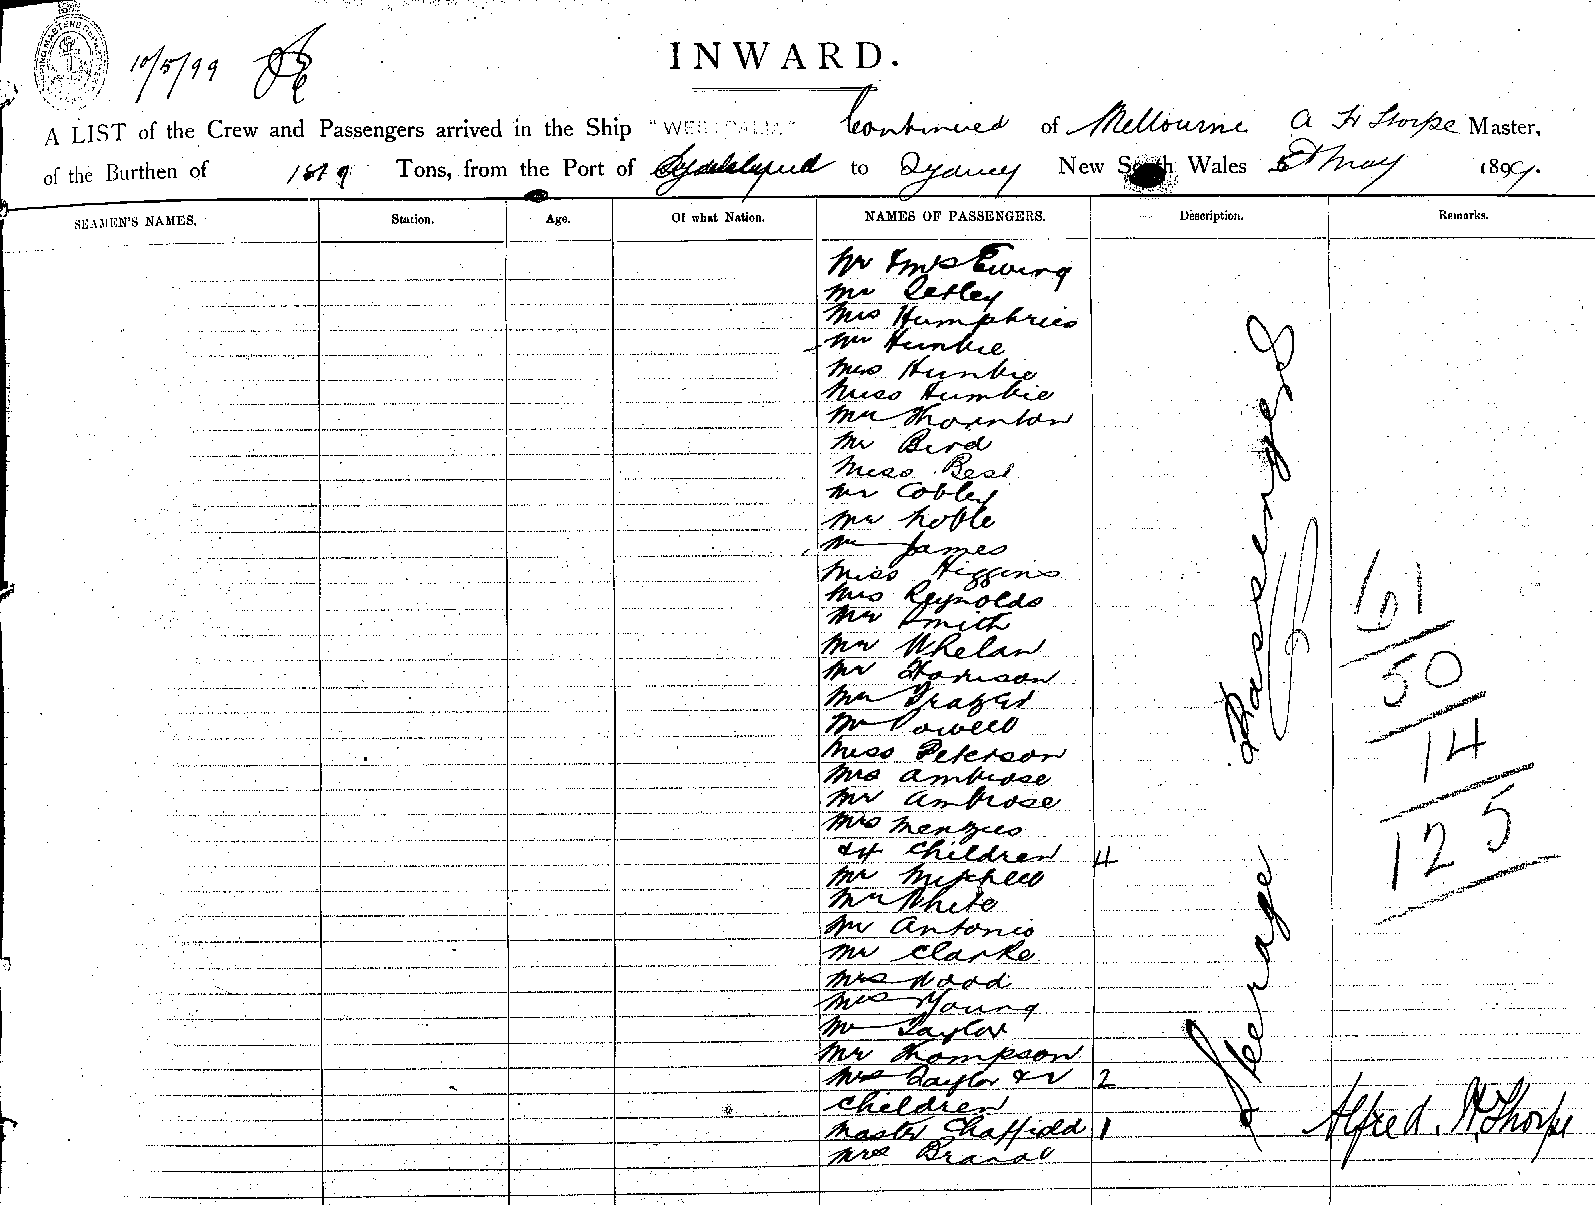 10/5/99
INWARD.
A LIST of the Crew and Passengers arrived in the Ship "WESTRALIA" Continued of Melbourne A H Thorpe Master,
of the Burthen of 1819 Tons, from the Port of to Sydney New South Wales 5th May 1899.
SEAMEN'S NAMES. Station. Age. Of what Nation. NAMES OF PASSENGERS. Description. Remarks.
Mr & Mrs Ewing
Mr
Mrs Humphries
Mr Humbie
Mrs Humbie
Miss Humbie
Mr Thornton
Mr Bird
Miss Best
Mr Cobley
Mr Noble
Mr James
Miss Higgins
Mrs Reynolds
Mr Smith
Mr Whelan
Mr Harrison
Mr Frazer
Mr Powell
Miss Peterson
Mrs Ambrose
Mr Ambrose
Mrs Menzies
& 4 Children 4
Mr Mitchell
Mr White
Mr Antonio
Mr Clarke
Mrs Wood
Mrs Young
Mr Taylor
Mr Thompson
Mrs Taylor & 2 2
Children
Master Chaffield 1
Mrs
Steerage Passengers
50
14
125
Alfred. H. Thorpe